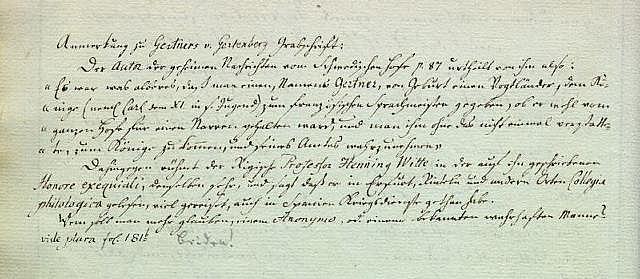 Anmerkung zu Geitners v. Geitenberg Grabschrift:
Der Autor der geheimen Nachrichten vom Schwedischen Hofe p. 87 urtheilt von ihm also:
"Es war was albernes, daß man einen, Namens Geitner, von Geburt einen Vogtländer, dem Kö-
"nige (nemlich Carl dem XI. in s. Jugend) zum französischen Sprachmeister gegeben, ob er wohl vom
"ganzen Hofe für einen Narren gehalten ward, und man ihm ohne das nicht einmal verstatte-
"te, zum Könige zu kommen, und seines Amtes wahrzunehmen"
Dahingegen rühmt der Rigische Professor Henning Witte in der auf ihn geschriebenen
Honore exequiali, denselben sehr, und sagt daß er in Erfurt, Rinteln und andern Orten Collegia
philologica gelesen, viel gereiset, auch in Spanien Kriegsdienste gethan habe.
Wem soll man mehr glauben, einem Anonymo, od. einem bekannten wahrhaften Manne?
vide plura fol. 181b Beiden!